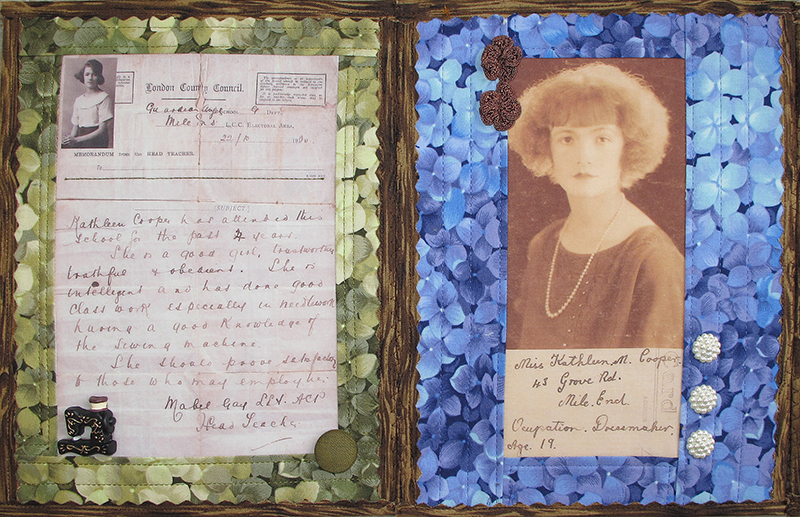 London County Council.
SCHOOL G DEPT.
Mile End L.C.C. ELECTORAL AREA,
MEMORANDUM from the HEAD TEACHER.
To
(SUBJECT)
Kathleen Cooper has attended this
school for the past 4 years.
She is a good girl, trustworthy
truthful & obedient. She is
intelligent and has done good
class work especially in needlework
having a good knowledge of
the sewing machine.
She should prove satisfactory
to those who may employ her.
Mabel Gay LLA. ACP
Head Teacher
Miss Kathleen. M. Cooper.
43 Grove Rd.
Mile. End
Occupation. Dressmaker.
Age. 19.